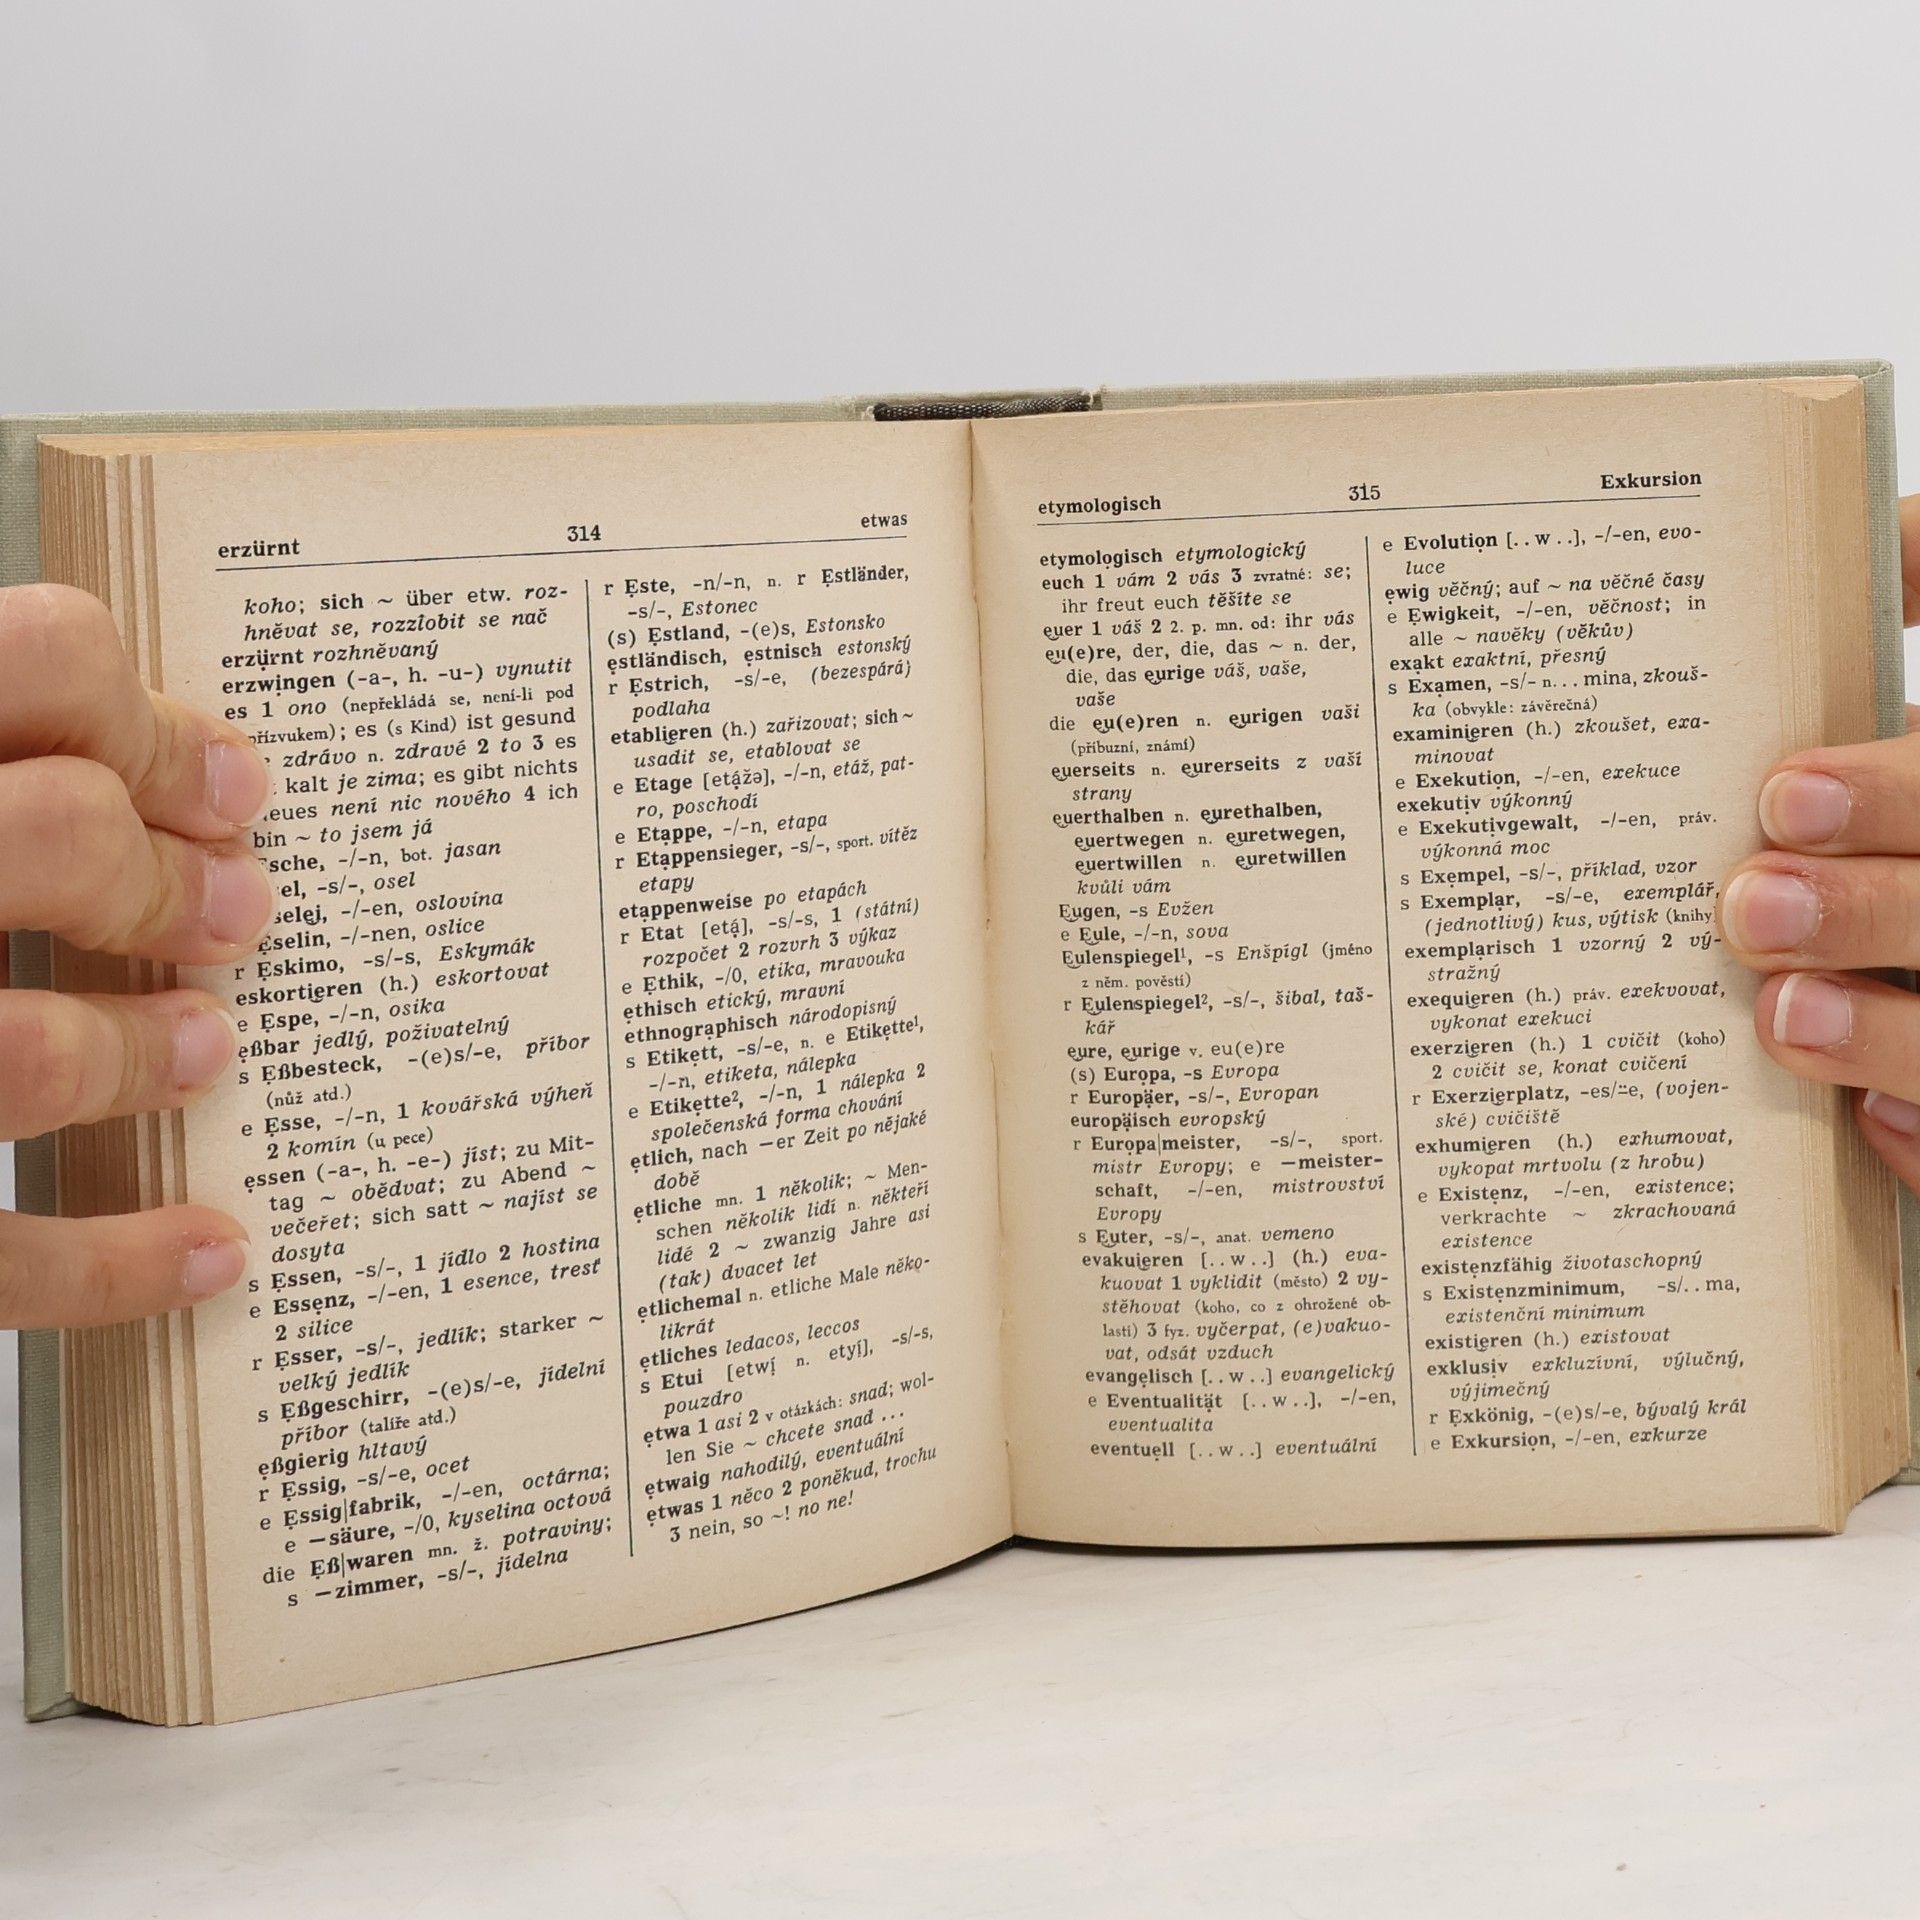 erzürnt 314 etwas
koho; sich ~ über etw. roz-
hněvat se, rozzlobit se nač
erzürnt rozhněvaný
erzwingen (-a-, h. -u-) vynutit
es 1 ono (nepřekládá se, není-li pod
přízvukem); es (s Kind) ist gesund
zdrávo n. zdravé 2 to 3 es
kalt je zima; es gibt nichts
není nic nového 4 ich
bin ~ to jsem já
-/-n, bot. jasan
-s/-, osel
-/-en, oslovina
Eselin, -/-nen, oslice
r Eskimo, -s/-s, Eskymák
eskortieren (h.) eskortovat
e Espe, -/-n, osika
eßbar jedlý, poživatelný
s Eßbesteck, -(e)s/-e, příbor
(nůž atd.)
e Esse, -/-n, 1 kovářská výheň
2 komín (u pece)
essen (-a-, h. -e-) jíst; zu Mit-
tag ~ obědvat; zu Abend ~
večeřet; sich satt ~ najíst se
dosyta
s Essen, -s/-, 1 jídlo 2 hostina
e Essenz, -/-en, 1 esence, tresť
2 silice
r Esser, -s/-, jedlík; starker ~
velký jedlík
s Eßgeschirr, -(e)s/-e, jídelní
příbor (talíře atd.)
eßgierig hltavý
r Essig, -s/-e, ocet
e Essig|fabrik, -/-en, octárna;
e —säure, -/0, kyselina octová
die Eß|waren mn. ž. potraviny;
s —zimmer, -s/-, jídelna
r Este, -n/-n, n. r Estländer,
-s/-, Estonec
(s) Estland, -(e)s, Estonsko
estländisch, estnisch estonský
r Estrich, -s/-e, (bezespárá)
podlaha
etablieren (h.) zařizovat; sich ~
usadit se, etablovat se
e Etage [etážə], -/-n, etáž, pat-
ro, poschodí
e Etappe, -/-n, etapa
r Etappensieger, -s/-, sport. vítěz
etapy
etappenweise po etapách
r Etat [etá], -s/-s, 1 (státní)
rozpočet 2 rozvrh 3 výkaz
e Ethik, -/0, etika, mravouka
ethisch etický, mravní
ethnographisch národopisný
s Etikett, -s/-e, n. e Etikette¹,
-/-n, etiketa, nálepka
e Etikette², -/-n, 1 nálepka 2
společenská forma chování
etlich, nach —er Zeit po nějaké
době
etliche mn. 1 několik; ~ Men-
schen několik lidí n. někteří
lidé 2 ~ zwanzig Jahre asi
(tak) dvacet let
etlichemal n. etliche Male něko-
likrát
etliches ledacos, leccos
s Etui [etwí n. etyí], -s/-s,
pouzdro
etwa 1 asi 2 v otázkách: snad; wol-
len Sie ~ chcete snad ...
etwaig nahodilý, eventuální
etwas 1 něco 2 poněkud, trochu
3 nein, so ~! no ne!
etymologisch 315 Exkursion
etymologisch etymologický
euch 1 vám 2 vás 3 zvratné: se;
ihr freut euch těšíte se
euer 1 váš 2 2. p. mn. od: ihr vás
eu(e)re, der, die, das ~ n. der,
die, das eurige váš, vaše,
vaše
die eu(e)ren n. eurigen vaši
(příbuzní, známí)
euerseits n. eurerseits z vaší
strany
euerthalben n. eurethalben,
euertwegen n. euretwegen,
euertwillen n. euretwillen
kvůli vám
Eugen, -s Evžen
e Eule, -/-n, sova
Eulenspiegel¹, -s Enšpígl (jméno
z něm. pověsti)
r Eulenspiegel², -s/-, šibal, taš-
kář
eure, eurige v. eu(e)re
(s) Europa, -s Evropa
r Europäer, -s/-, Evropan
europäisch evropský
r Europa|meister, -s/-, sport.
mistr Evropy; e —meister-
schaft, -/-en, mistrovství
Evropy
s Euter, -s/-, anat. vemeno
evakuieren [..w..] (h.) eva-
kuovat 1 vyklidit (město) 2 vy-
stěhovat (koho, co z ohrožené ob-
lasti) 3 fyz. vyčerpat, (e)vakuo-
vat, odsát vzduch
evangelisch [..w..] evangelický
e Eventualität [..w..], -/-en,
eventualita
eventuell [..w..] eventuální
e Evolution [..w..], -/-en, evo-
luce
ewig věčný; auf ~ na věčné časy
e Ewigkeit, -/-en, věčnost; in
alle ~ navěky (věkův)
exakt exaktní, přesný
s Examen, -s/- n. ..mina, zkouš-
ka (obvykle: závěrečná)
examinieren (h.) zkoušet, exa-
minovat
e Exekution, -/-en, exekuce
exekutiv výkonný
e Exekutivgewalt, -/-en, práv.
výkonná moc
s Exempel, -s/-, příklad, vzor
s Exemplar, -s/-e, exemplář,
(jednotlivý) kus, výtisk (knihy)
exemplarisch 1 vzorný 2 vý-
stražný
exequieren (h.) práv. exekvovat,
vykonat exekuci
exerzieren (h.) 1 cvičit (koho)
2 cvičit se, konat cvičení
r Exerzierplatz, -es/⸚e, (vojen-
ské) cvičiště
exhumieren (h.) exhumovat,
vykopat mrtvolu (z hrobu)
e Existenz, -/-en, existence;
verkrachte ~ zkrachovaná
existence
existenzfähig životaschopný
s Existenzminimum, -s/..ma,
existenční minimum
existieren (h.) existovat
exklusiv exkluzívní, výlučný,
výjimečný
r Exkönig, -(e)s/-e, bývalý král
e Exkursion, -/-en, exkurze